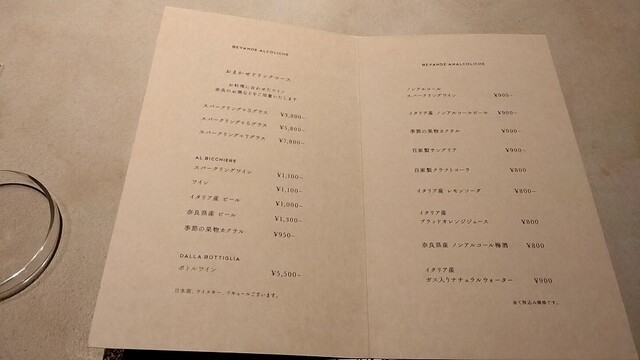 BEVANDE ALCOLICHE
おまかせドリンクコース
お料理に合わせたワイン
奈良のお酒などをご用意いたします
スパークリング+3グラス ¥3,800~
スパークリング+5グラス ¥5,800~
スパークリング+7グラス ¥7,800~
AL BICCHIERE
スパークリングワイン ¥1,100~
ワイン ¥1,100~
イタリア産 ビール ¥1,000~
奈良県産 ビール ¥1,300~
季節の果物カクテル ¥950~
DALLA BOTTIGLIA
ボトルワイン ¥5,500~
日本酒、ウイスキー、リキュールございます。
BEVANDE ANALCOLICHE
ノンアルコール
スパークリングワイン ¥900~
イタリア産 ノンアルコールビール ¥900~
季節の果物カクテル ¥900~
自家製サングリア ¥900~
自家製クラフトコーラ ¥800
イタリア産 レモンソーダ ¥800~
イタリア産
ブラッドオレンジジュース ¥800
奈良県産 ノンアルコール梅酒 ¥800
イタリア産
ガス入りナチュラルウォーター ¥900
全て税込み価格です。